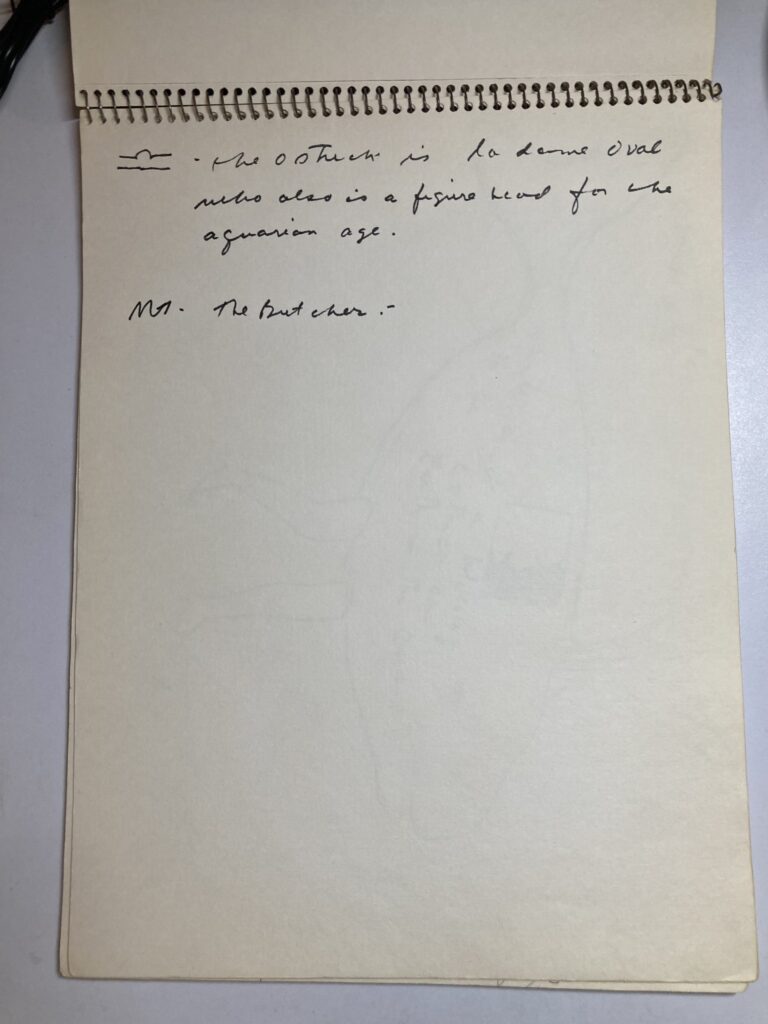 ♎ - the ostrich is la dame oval
who also is a figure head for the
aquarian age.
The Butcher.-